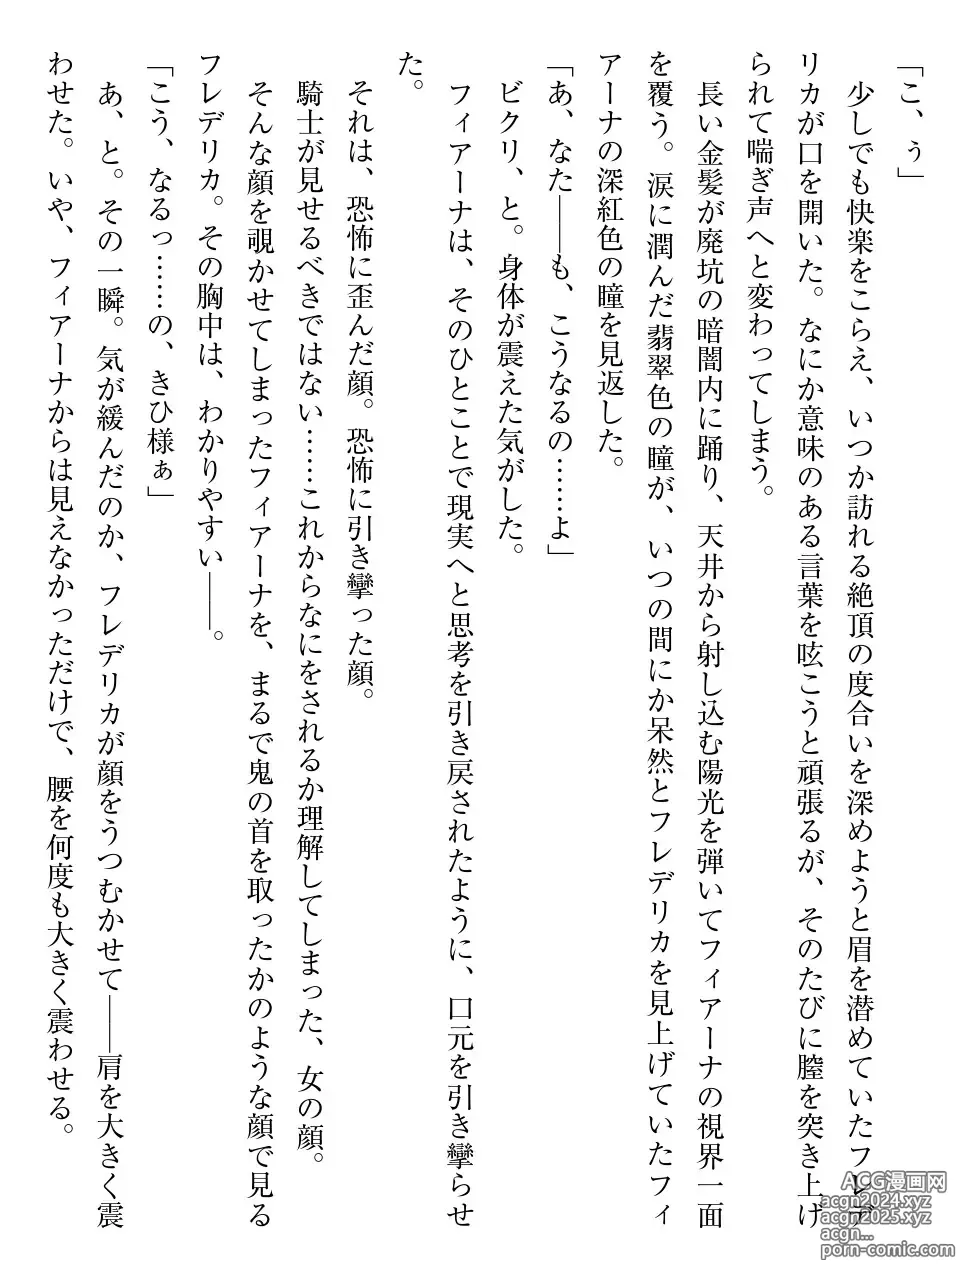 「こ、ぅ」
　少しでも快楽をこらえ、いつか訪れる絶頂の度合いを深めようと眉を潜めていたフレデ
リカが口を開いた。なにか意味のある言葉を呟こうと頑張るが、そのたびに膣を突き上げ
られて喘ぎ声へと変わってしまう。
　長い金髪が廃坑の暗闇内に踊り、天井から射し込む陽光を弾いてフィアーナの視界一面
を覆う。涙に潤んだ翡翠色の瞳が、いつの間にか呆然とフレデリカを見上げていたフィ
アーナの深紅色の瞳を見返した。
「あ、なた――も、こうなるの……よ」
　ビクリ、と。身体が震えた気がした。
　フィアーナは、そのひとことで現実へと思考を引き戻されたように、口元を引き攣らせ
た。
　それは、恐怖に歪んだ顔。恐怖に引き攣った顔。
　騎士が見せるべきではない……これからなにをされるか理解してしまった、女の顔。
　そんな顔を覗かせてしまったフィアーナを、まるで鬼の首を取ったかのような顔で見る
フレデリカ。その胸中は、わかりやすい――。
「こう、なるっ……の、きひ様ぁ」
　あ、と。その一瞬。気が緩んだのか、フレデリカが顔をうつむかせて――肩を大きく震
わせた。いや、フィアーナからは見えなかっただけで、腰を何度も大きく震わせる。
ACG漫画网
acgn2024.xyz
acgn2025.xyz
acgn...
porn-comic.com